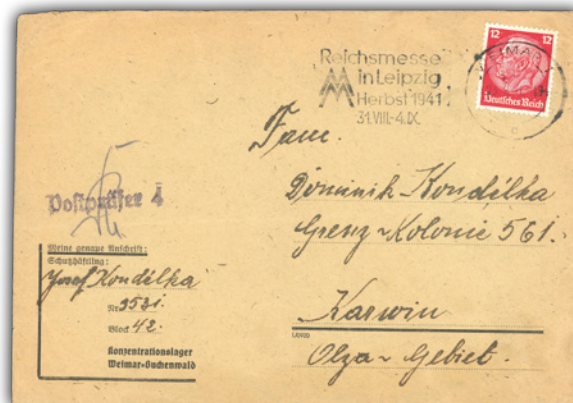 Reichsmesse
in Leipzig
Herbst 1941
31.VIII.-4.IX.
WEIMAR
c
12 12
Deutsches Reich
Fam.
Dominik Kondélka
Grenz-Kolonie 561.
Karwin
Olza-Gebiet.
Postprüfer 4
Meine genaue Anschrift:
Schutzhäftling:
Josef Kondélka
Nr. 9531
Block 42.
Konzentrationslager
Weimar-Buchenwald